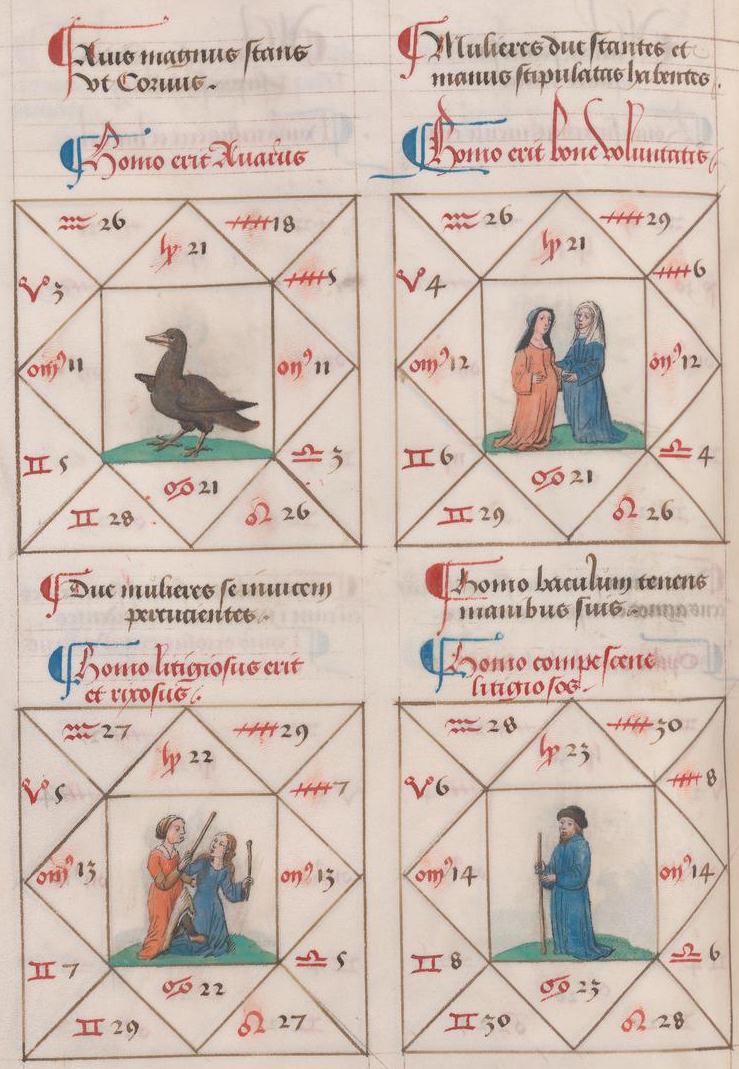 Auis magnus stans
vt Coruus.
Homo erit Auarus
♒ 26
♑ 21
18
♈ 3
5
11
11
♊ 5
♎ 3
♊ 28
♋ 21
♌ 26
Mulieres due stantes et
manus stipulatas habentes.
Homo erit bone voluntatis
♒ 26
♑ 21
29
♈ 4
6
12
12
♊ 6
♎ 4
♊ 29
♋ 21
♌ 26
Due mulieres se inuicem
percucientes.
Homo litigiosus erit
et rixosus.
♒ 27
♑ 22
29
♈ 5
7
13
13
♊ 7
♎ 5
♊ 29
♋ 22
♌ 27
Homo baculum tenens
manibus suis.
Homo compescens
litigiosos.
♒ 28
♑ 23
30
♈ 6
8
14
14
♊ 8
♎ 6
♊ 30
♋ 23
♌ 28